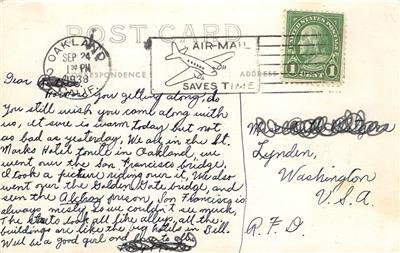 POST CARD
OAKLAND
SEP 24
1 30 PM
1938
CALIF.
AIR-MAIL
SAVES TIME
RESPONDENCE
ADDRESS
UNITED STATES POSTAGE
1 CENT 1
Dear
How are you getting along, do
you still wish you came along with
us, it sure is warm today but not
as bad as yesterday. We are in the St.
Marks Hotel tonite in Oakland, we
went over the San Francisco bridge,
I took a picture riding over it. We also
went over the Golden Gate bridge, and
seen the Alcatraz prison, San Francisco is
always misty, so we couldn't see much,
The streets look all like alleys, all the
buildings are like the big hotels in Bell.
Will be a good girl and
Lynden,
Washington
U.S.A.
R.F.D.